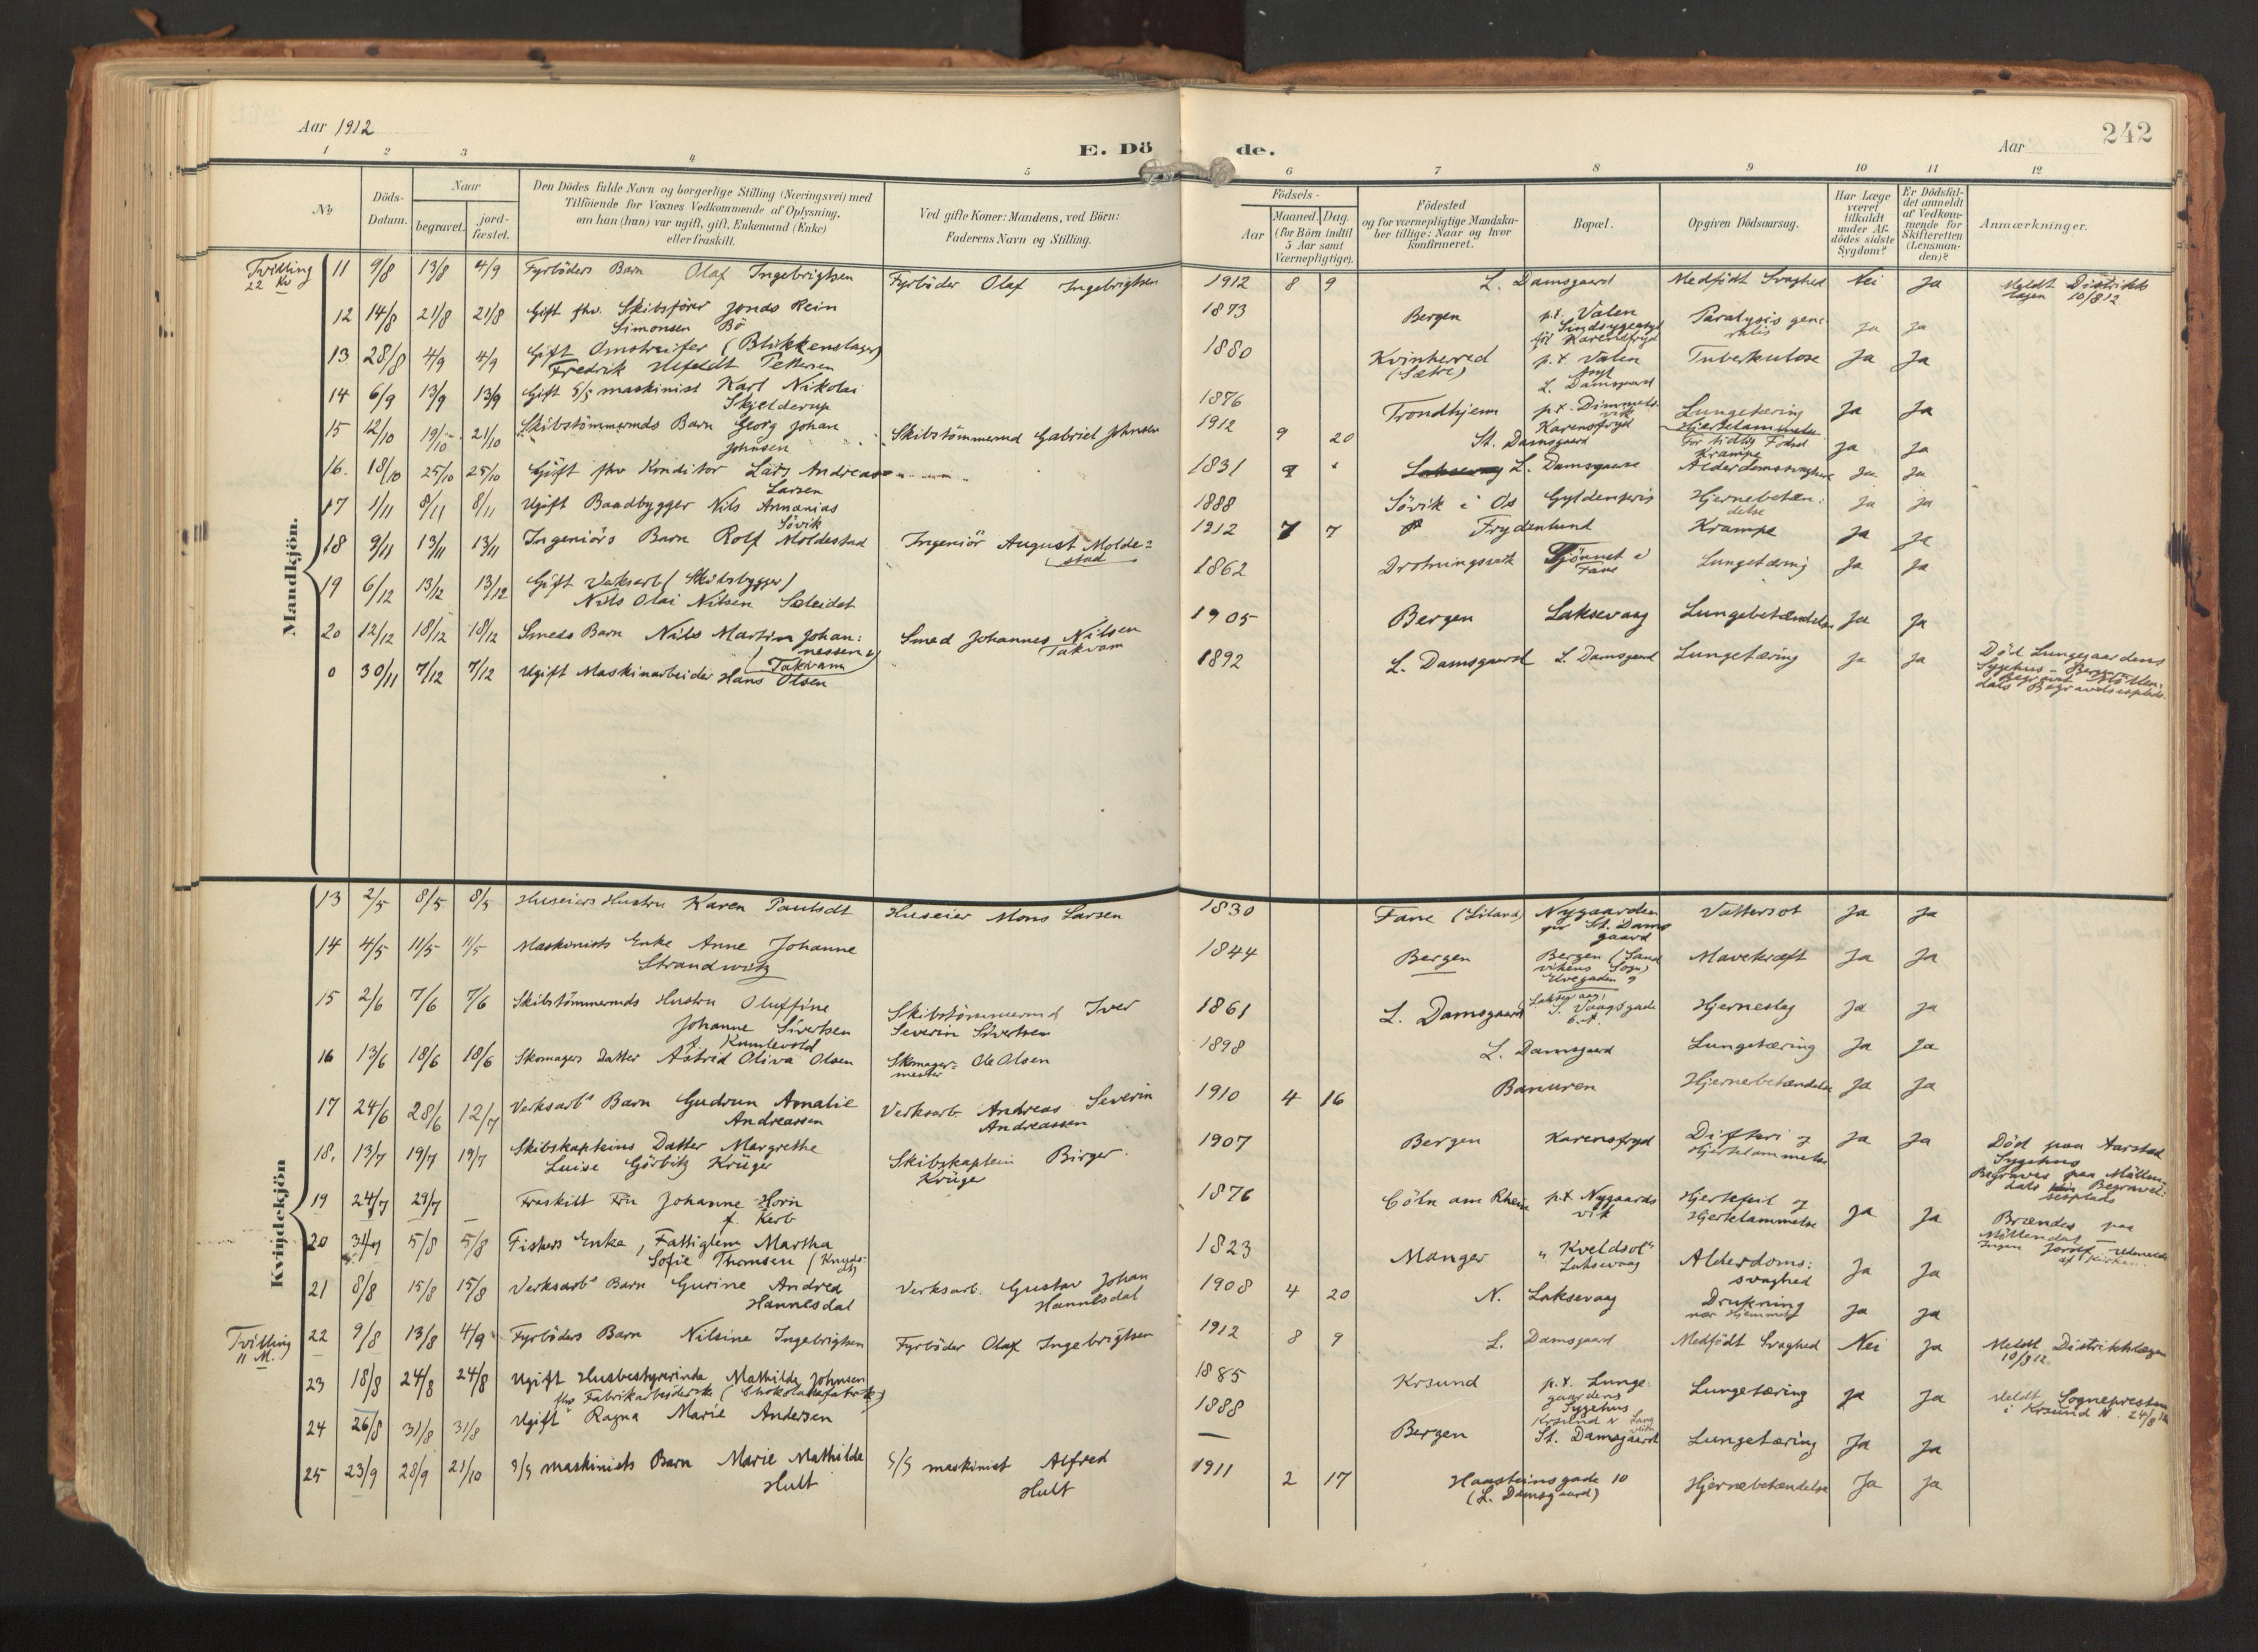 Aar 1912
E. Dö de.
Aar
242
1 2 3 4 5 6 7 8 9 10 11 12
No
Döds-Datum.
Naar
begravet.
jord-fæstet.
Den Dödes fulde Navn og borgerlige Stilling (Næringsvei) med
Tilföiende for Voxnes Vedkommende af Oplysning,
om han (hun) var ugift, gift, Enkemand (Enke)
eller fraskilt.
Ved gifte Koner: Mandens, ved Börn:
Faderens Navn og Stilling.
Födsels-
Aar
Maaned. Dag.
(for Börn indtil
5 Aar samt
Værnepligtige).
Födested
og for værnepligtige Mandska-
ber tillige: Naar og hvor
konfirmeret.
Bopæl.
Opgiven Dödsaarsag.
Har Læge
været
tilkaldt
under Af-
dödes sidste
Sygdom?
Er Dödsfal-
det anmeldt
af Vedkom-
mende for
Skifteretten
(Lensman-
den)?
Anmærkninger.
Mandkjön.
Tvilling
22 Kv
11 9/8 13/8 4/9 Fyrböders Barn Olaf Ingebrigtsen Fyrböder Olaf Ingebrigtsen 1912 8 9 L. Damsgaard Medfödt Svaghed Nei Ja Meldt Distrikts
lægen 10/8 12
12 14/8 21/8 21/8 Gift fhv. Skibsförer Jonas Rein
Simonsen Bö 1873 Bergen p.t. Valen
Sindsygeasyl
för Karensfryd Paralysis gene-
ralis Ja Ja
13 28/8 4/9 4/9 Gift Omstreifer (Blikkenslager)
Fredrik Pettersen 1880 Kvinherred
(Sætre) p.t. Valen
Asyl
L. Damsgaard Tuberkulose Ja Ja
14 6/9 13/9 13/9 Gift S/S maskinist Karl Nikolai
Skjelderup 1876 Trondhjem p.t. Dimmels-
vik
Karensfryd Lungetæring
Hjertelammelse Ja Ja
15 12/10 19/10 21/10 Skibstömmermds Barn Georg Johan
Johnsen Skibstömmermd Gabriel Johnsen 1912 9 20 St. Damsgaard For tidlig Födsel
Krampe Ja Ja
16. 18/10 25/10 25/10 Gift fhv Konditor Lars Andreas
Larsen 1831 Laksevaag L. Damsgaard Alderdomssvaghed Ja Ja
17 1/11 8/11 8/11 Ugift Baadbygger Nils Annanias
Sövik 1888 Sövik i Os Gyldenpris Hjernebetæn:
delse Ja Ja
18 9/11 13/11 13/11 Ingeniörs Barn Rolf Moldestad Ingeniör August Molde=
stad 1912 7 7 Frydenlund Krampe Ja Ja
19 6/12 13/12 13/12 Gift Vaksarb (Skibsbygger)
Nils Olai Nilsen Söleidet 1862 Drotningsvik Tjönnet i
Fane Lungetæring Ja Ja
20 12/12 18/12 18/12 Smeds Barn Nils Martin Johan:
nessen
(Takvam) Smed Johannes Nilsen
Takvam 1905 Bergen Laksevaag Lungebetændelse Ja Ja
0 30/11 7/12 7/12 Ugift Maskinarbeider Hans Olsen 1892 L. Damsgaard L. Damsgaard Lungetæring Ja Ja Död Lungegaardens
Sygehus - Bergen
Begravet Möllen:
dals Begravelsesplads.
Kvindekjön
13 2/5 8/5 8/5 Huseiers Hustru Karen Paulsdt Huseier Mons Larsen 1830 Fane (Liland) Nygaarden
per St. Dams
gaard Vattersot Ja Ja
14 4/5 11/5 11/5 Maskinists Enke Anne Johanne
Strandwitz 1844 Bergen Bergen (Sand
vikens Sogn)
Elvegaden 9 Mavekræft Ja Ja
15 2/6 7/6 7/6 Skibstömmermds Hustru Oluffine
Johanne Sivertsen
f. Kumlevold Skibstömmermd Iver
Severin Sivertsen 1861 L. Damsgaard Laksevaag,
S. Vaagsgade
6.A. Hjerneslag Ja Ja
16 13/6 18/6 18/6 Skomagers Datter Astrid Oliva Olsen Skomager=
mester Ole Olsen 1898 L. Damsgaard Lungetæring Ja Ja
17 24/6 28/6 12/7 Verksarbs Barn Gudrun Amalie
Andreassen Verksarb. Andreas Severin
Andreassen 1910 4 16 Banuren Hjernebetændelse Ja Ja
18. 13/7 19/7 19/7 Skibskapteins Datter Margrethe
Luise Görbitz Krüger Skibskaptein Birger
Krüger 1907 Bergen Karensfryd Difteri og
Hjertelammelse Ja Ja Död paa Aarstad
Sygehus
Begraves paa Möllen-
dals Begravel-
sesplads
19 24/7 29/7 — Fraskilt Fru Johanne Horn
f. Kerb 1876 Cöln am Rhein p.t. Nygaards
vik Hjertefeil og
Hjertelammelse Ja Ja Brændes paa
Möllendal —
Ingen Jordf. Udmeldt
af Kirken.
20 31/7 5/8 5/8 Fiskers Enke, Fattiglem Martha
Sofie Thomsen (Knuds:
dt) 1823 Manger "Kveldsol"
Laksevaag Alderdoms:
svaghed Ja Ja
21 8/8 15/8 15/8 Verksarbs Barn Gurine Andrea
Hannesdal Verksarb. Gustav Johan
Hannesdal 1908 4 20 N. Laksevaag Drukning
nær Hjemmet Ja Ja
Tvilling
11 M.
22 9/8 13/8 4/9 Fyrböders Barn Nilsine Ingebrigtsen Fyrböder Olaf Ingebrigtsen 1912 8 9 L. Damsgaard Medfödt Svaghed Nei Ja Meldt Distriktslægen
10/8 12.
23 18/8 24/8 24/8 Ugift Husbestyrerinde Mathilde Johnsen
fhv Fabrikarbeiderske (Chokoladefabrik) 1885 Krsund p.t. Lunge-
gaardens
Sygehus
Krsund N Lungetæring Ja Ja Meldt Sognepresten
i Krsund N. 24/8 12
24 26/8 31/8 31/8 Ugift Ragna Marie Andersen 1888
— Bergen St. Damsgaard Lungetæring Ja Ja
25 23/9 28/9 21/10 S/S maskinists Barn Marie Mathilde
Hult S/S maskinist Alfred
Hult 1911 2 17 Haasteinsgade 10
(L. Damsgaard) Hjernebetændelse Ja Ja